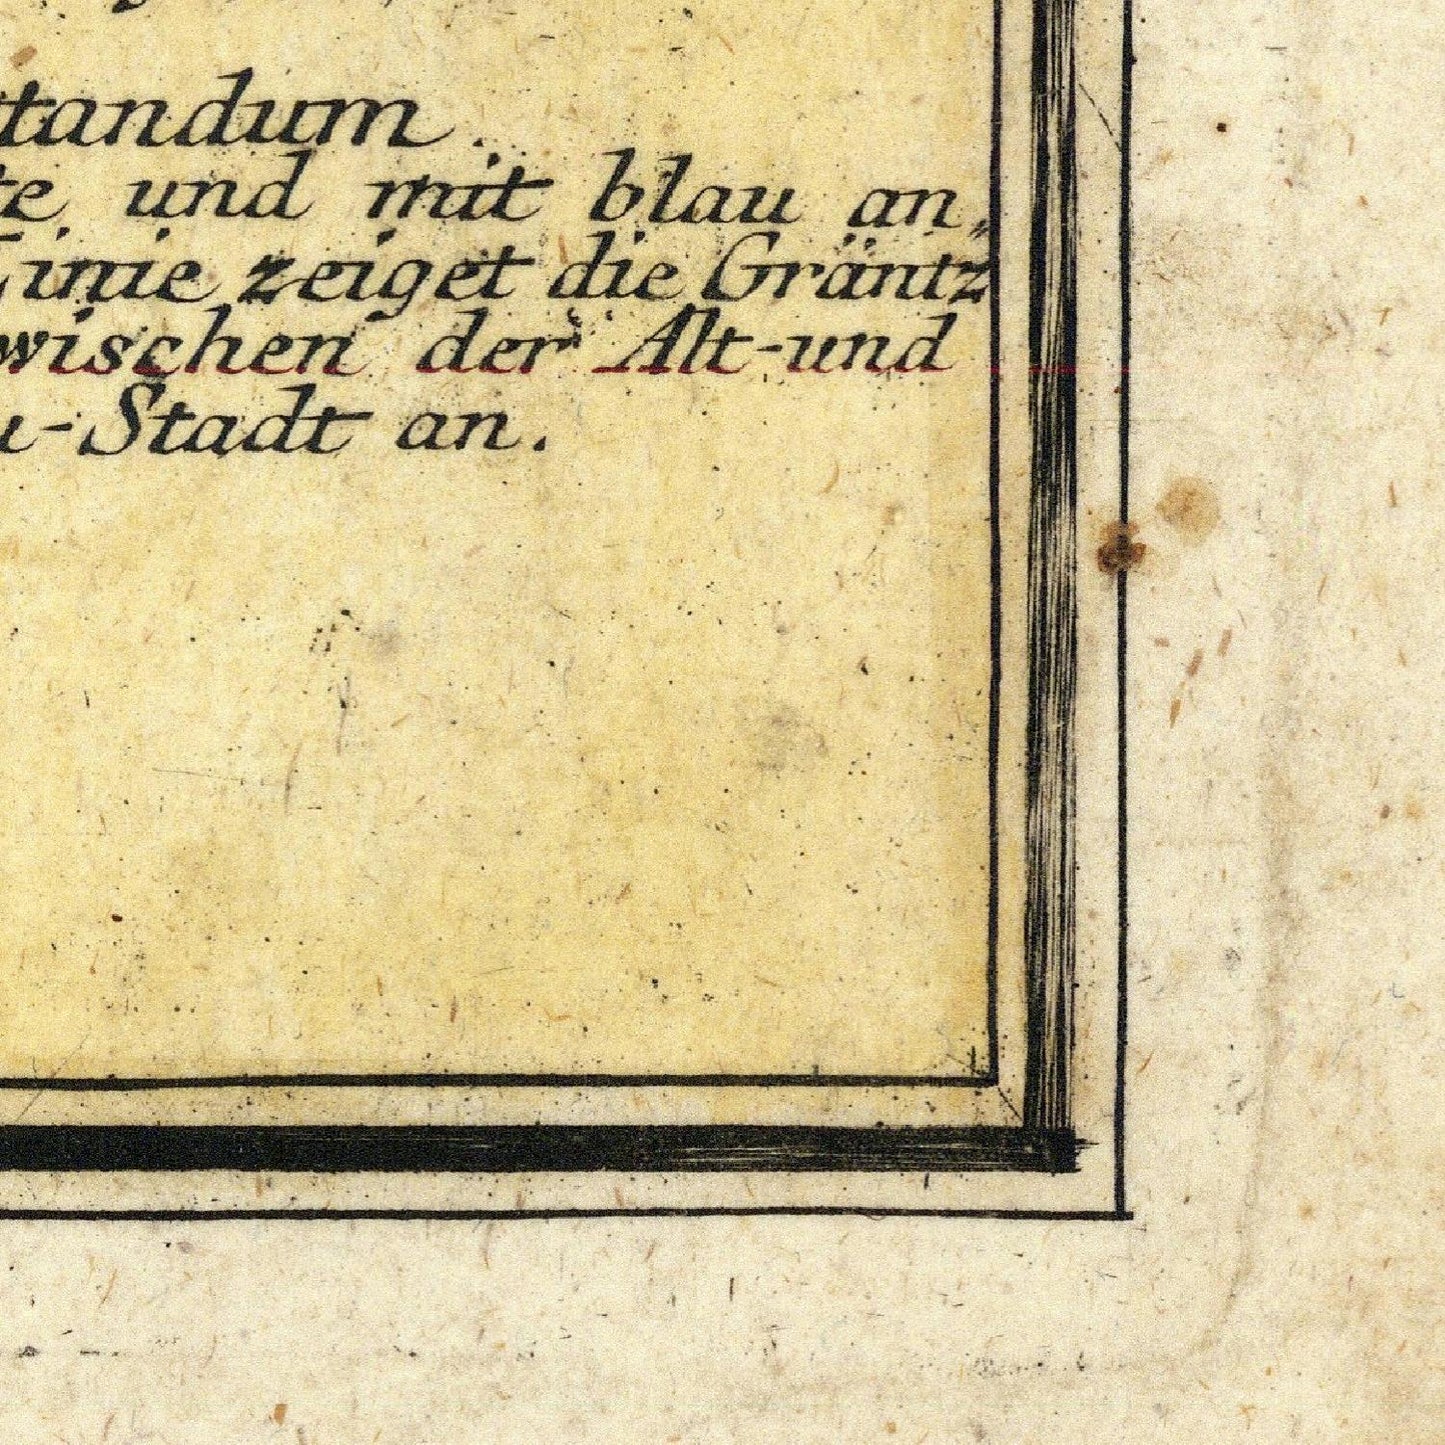 tandum.
te und mit blau an„
Linie zeiget die Gräntz
wischen der Alt-und
u-Stadt an.